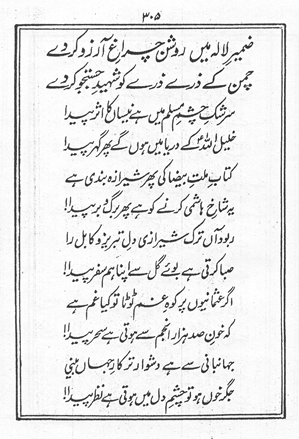 ۳۰۵
ضمیرِ لالہ میں روشن چراغِ آرزو کر دے
چمن کے ذرے ذرے کو شہیدِ جستجو کر دے
سرشکِ چشمِ مسلم میں ہے نیساں کا اثر پیدا
خلیل اللہؑ کے دریا میں ہوں گے پھر گہر پیدا
کتابِ ملتِ بیضا کی پھر شیرازہ بندی ہے
یہ شاخِ ہاشمی کرنے کو ہے پھر برگ و بر پیدا!
ربود آں ترکِ شیرازی دلِ تبریز و کابل را
صبا کرتی ہے بوئے گل سے اپنا ہم سفر پیدا!
اگر عثمانیوں پر کوہِ غم ٹوٹا تو کیا غم ہے
کہ خونِ صد ہزار انجم سے ہوتی ہے سحر پیدا!
جہانبانی سے ہے دشوار تر کارِ جہاں بینی
جگر خوں ہو تو چشمِ دل میں ہوتی ہے نظر پیدا!